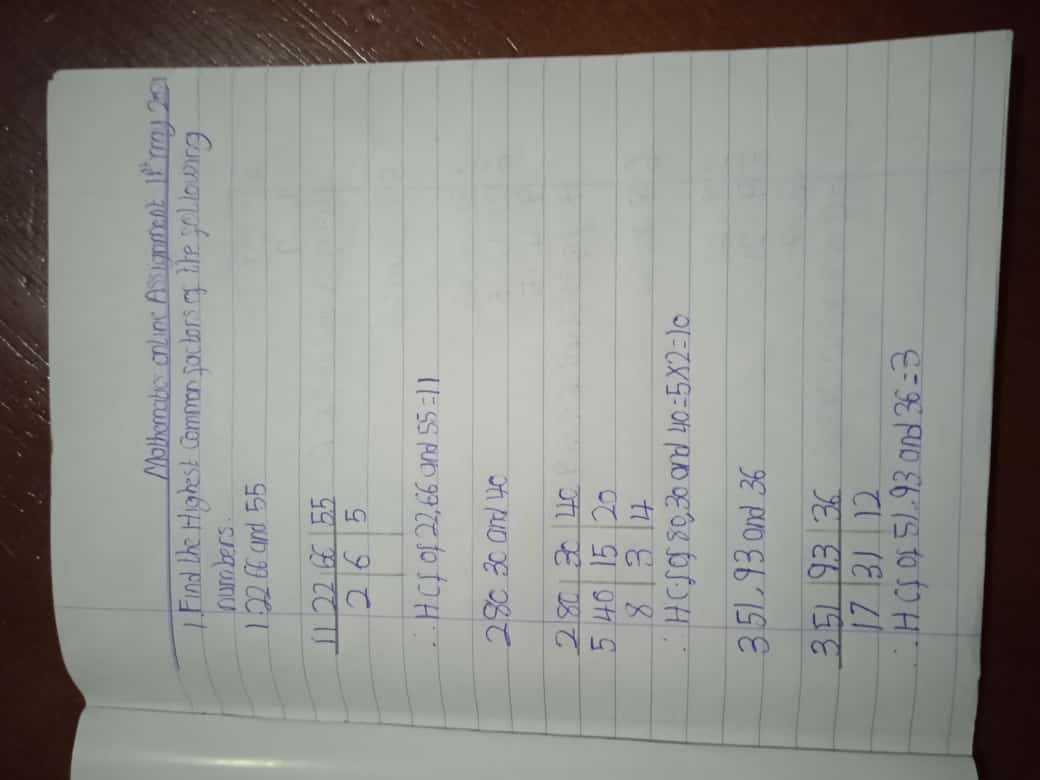 Mathematics online Assignment 1st may 20
1. Find the Highest Common factors of the following
numbers.
1. 22 66 and 55
11 22 66 55
2 6 5
∴ H C f of 22, 66 and 55 = 11
2 80 30 and 40
2 80 30 40
5 40 15 20
8 3 4
∴ H C f of 80, 30 and 40 = 5 X 2 = 10
3 51, 93 and 36
3 51 93 36
17 31 12
∴ H C f of 51, 93 and 36 = 3